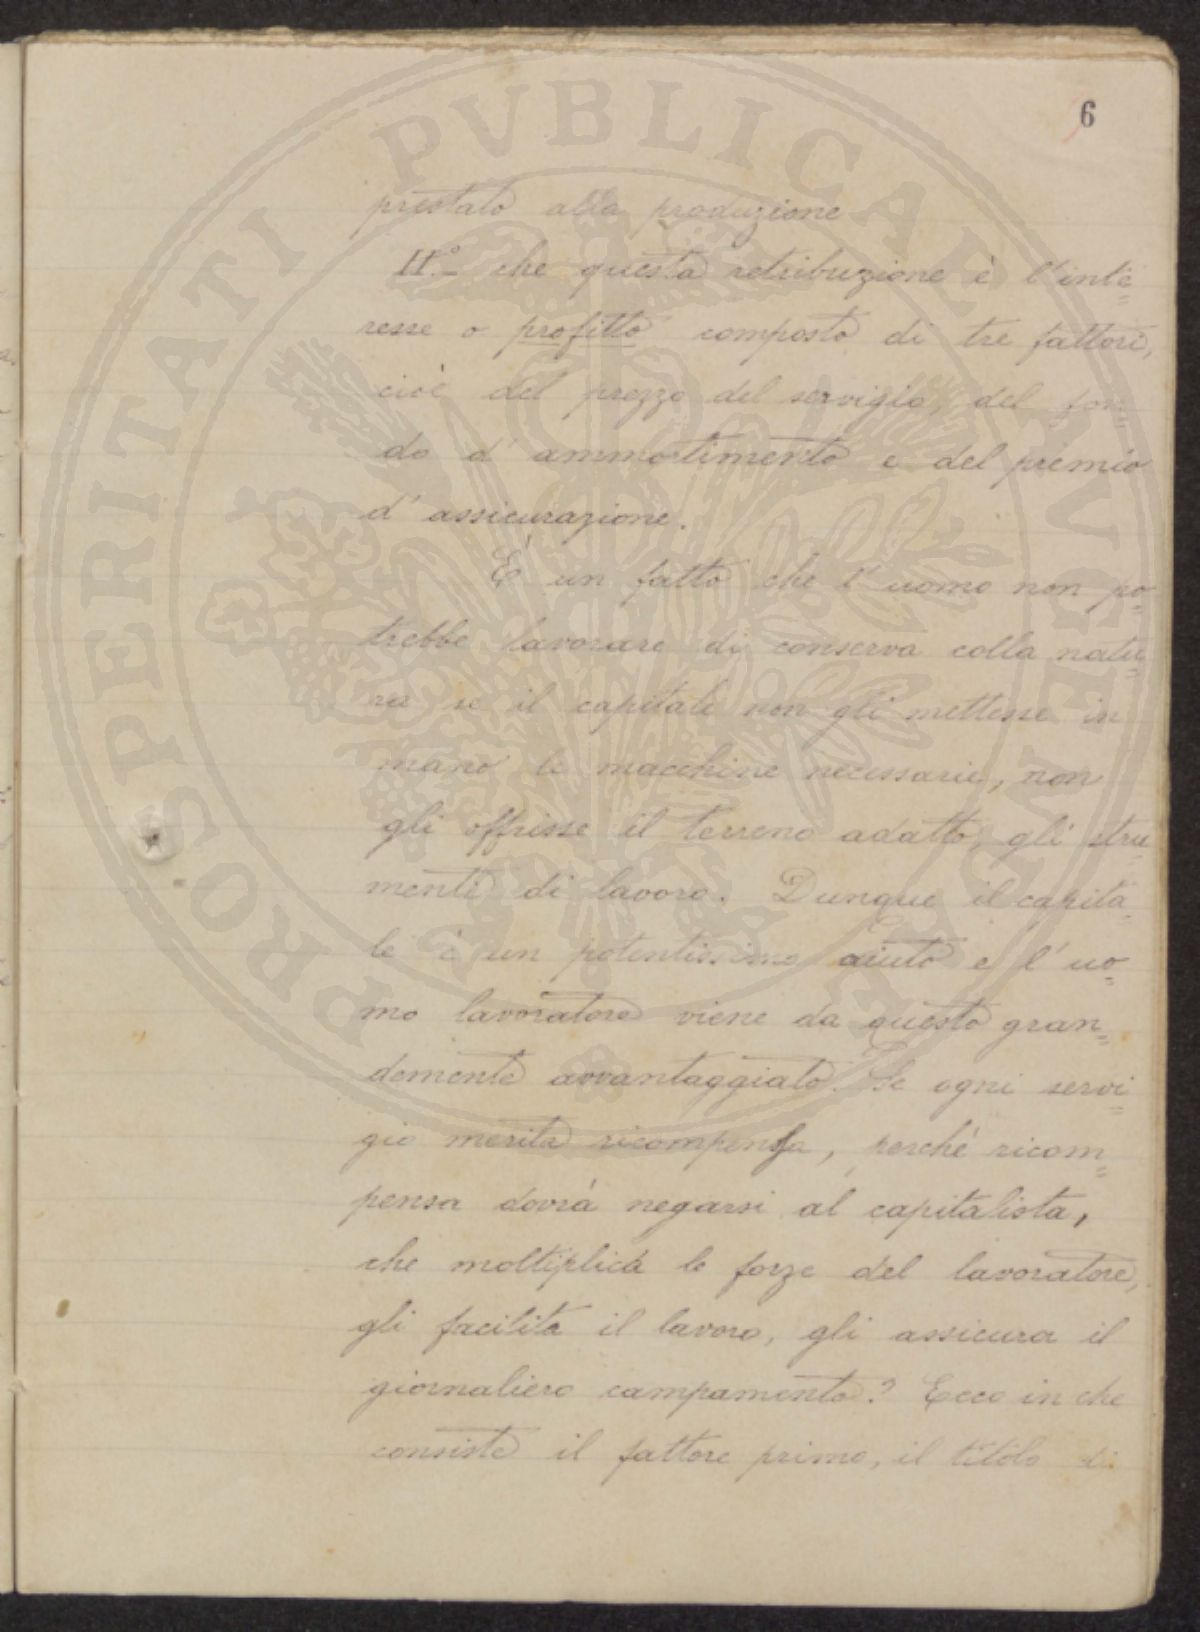 6
prestato alla produzione
II.° che questa retribuzione è l'inte=
resse o profitto composto di tre fattori,
cioè del prezzo del servigio, del fon=
do d'ammortimento e del premio
d'assicurazione.
È un fatto che l'uomo non po=
trebbe lavorare di conserva colla natu=
ra se il capitale non gli mettesse in
mano le macchine necessarie, non
gli offrisse il terreno adatto, gli stru=
menti di lavoro. Dunque il capita=
le è un potentissimo aiuto e l'uo=
mo lavoratore viene da questo gran=
demente avvantaggiato. Se ogni servi=
gio merita ricompensa, perchè ricom=
pensa dovrà negarsi al capitalista,
che moltiplica le forze del lavoratore,
gli facilita il lavoro, gli assicura il
giornaliero campamento? Ecco in che
consiste il fattore primo, il titolo di
PROSPERITATI PVBLICAE AVGENDAE